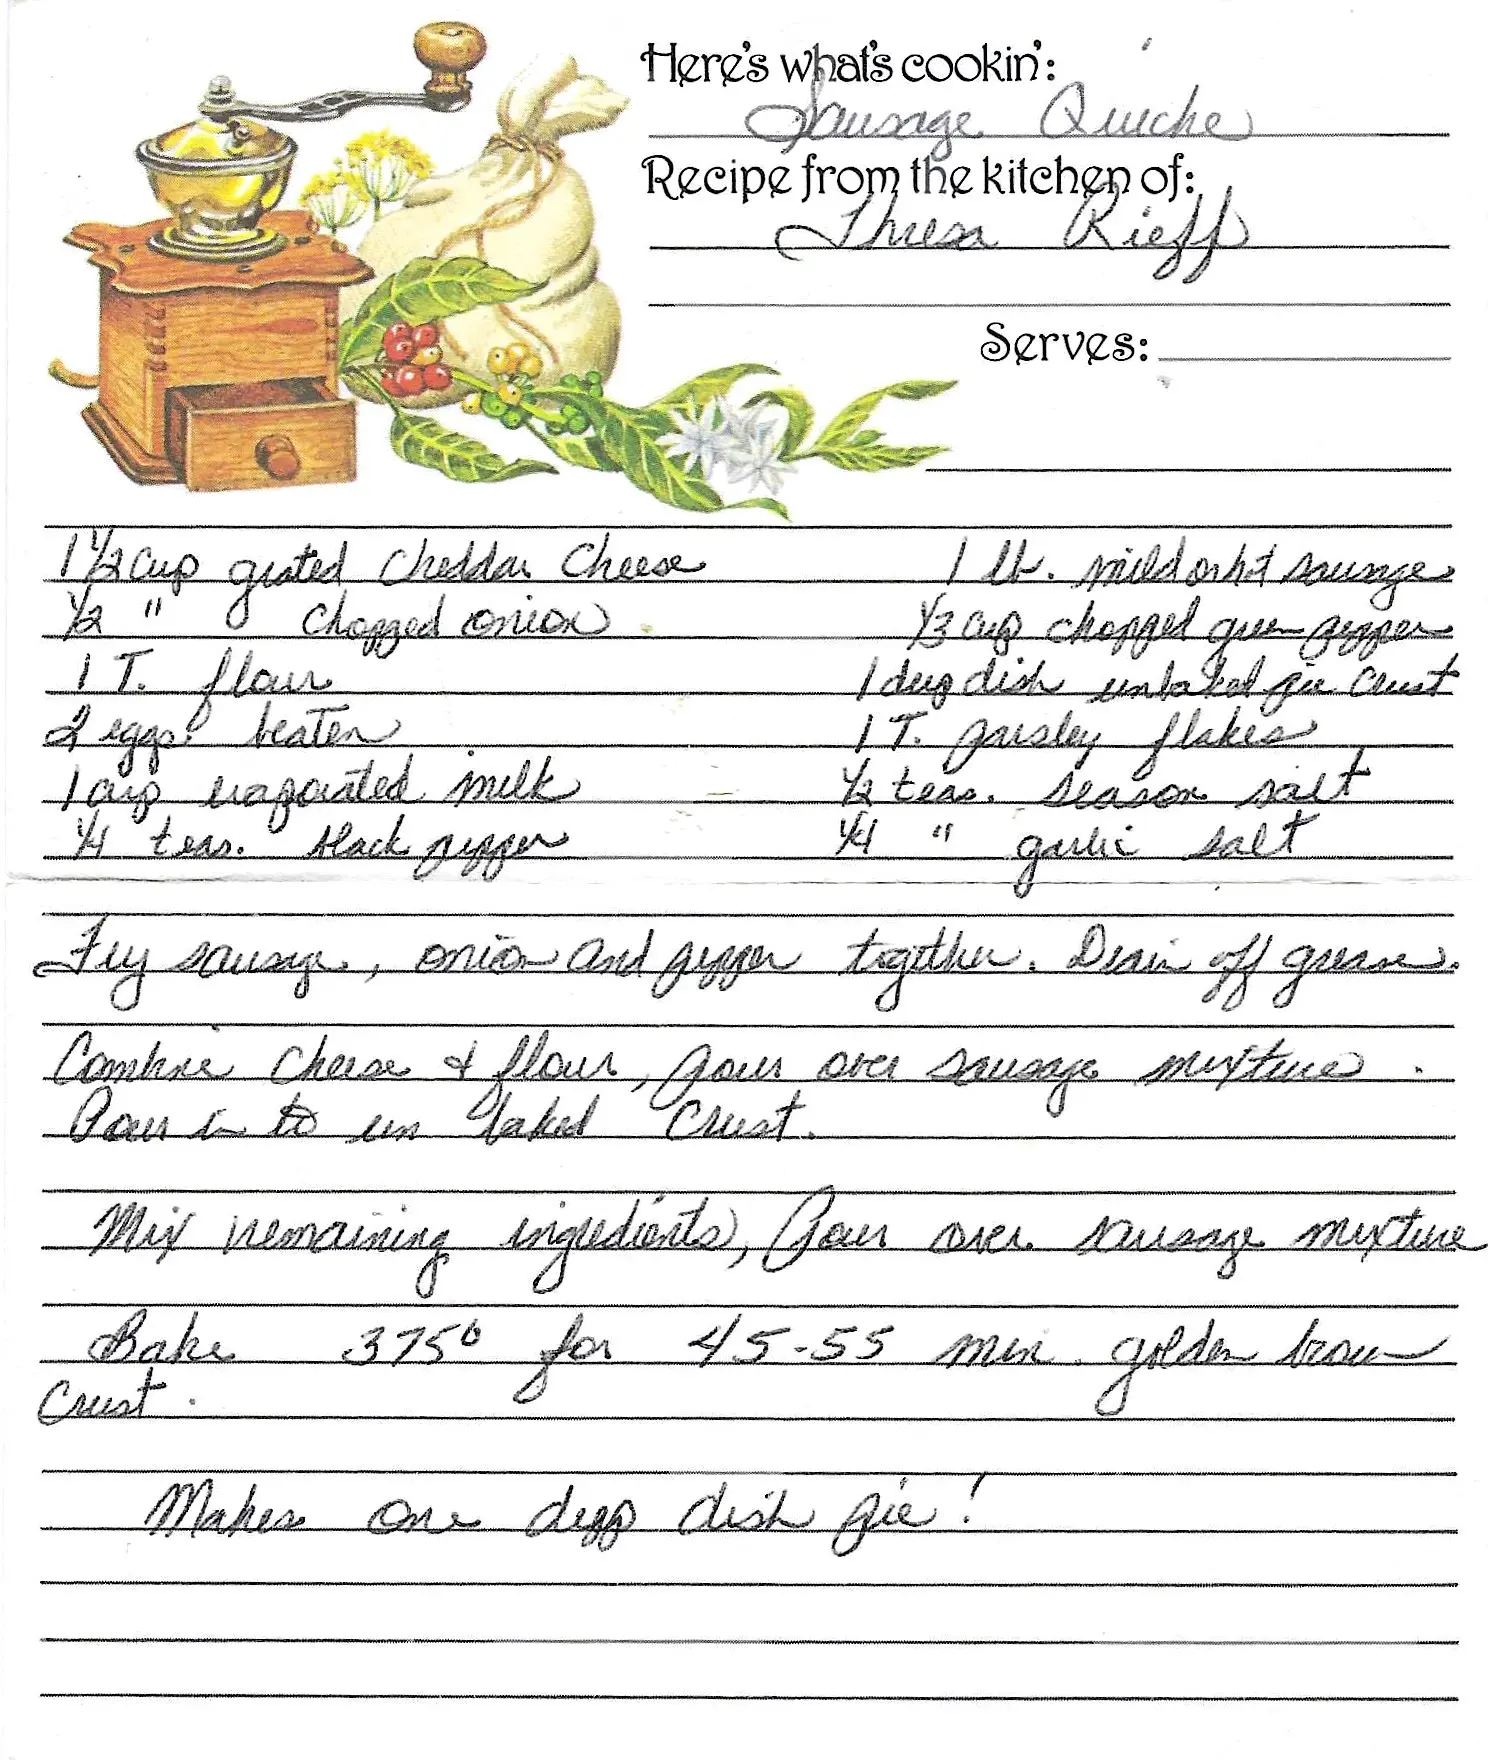 Here's what's cookin':
Sausage Quiche
Recipe from the kitchen of:
Theresa Rieff
Serves:
1 1/2 cup grated Cheddar Cheese 1 lb. mild or hot sausage
1/2 " chopped onion 1/3 cup chopped green pepper
1 T. flour 1 deep dish unbaked pie crust
2 eggs beaten 1 T. parsley flakes
1 cup evaporated milk 1/2 teas. season salt
1/4 teas. black pepper 1/4 " garlic salt
Fry sausage, onion and pepper together. Drain off grease.
Combine cheese & flour, pour over sausage mixture.
Pour in to un baked crust.
Mix remaining ingredients, Pour over sausage mixture
Bake 375° for 45-55 min. golden brown
Crust.
Makes one deep dish pie!